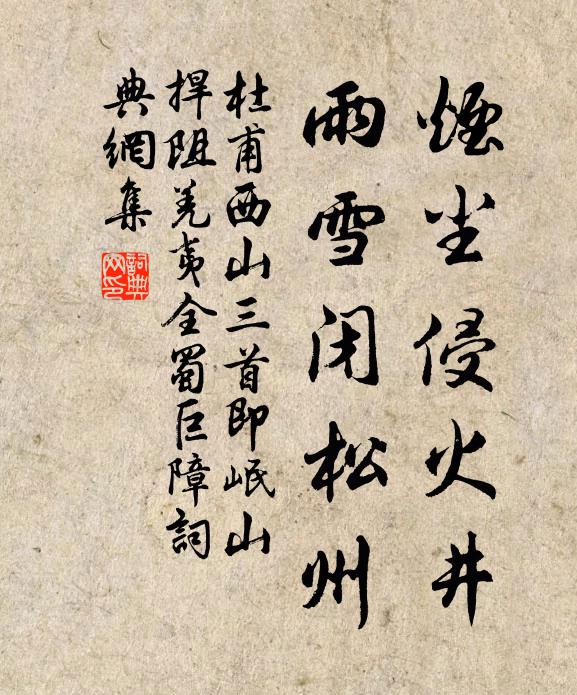 煙尘侵火井
雨雪闭松州
杜甫西山三首即岷山
捍阻羌夷全蜀巨障詞
典網集
詞典网印